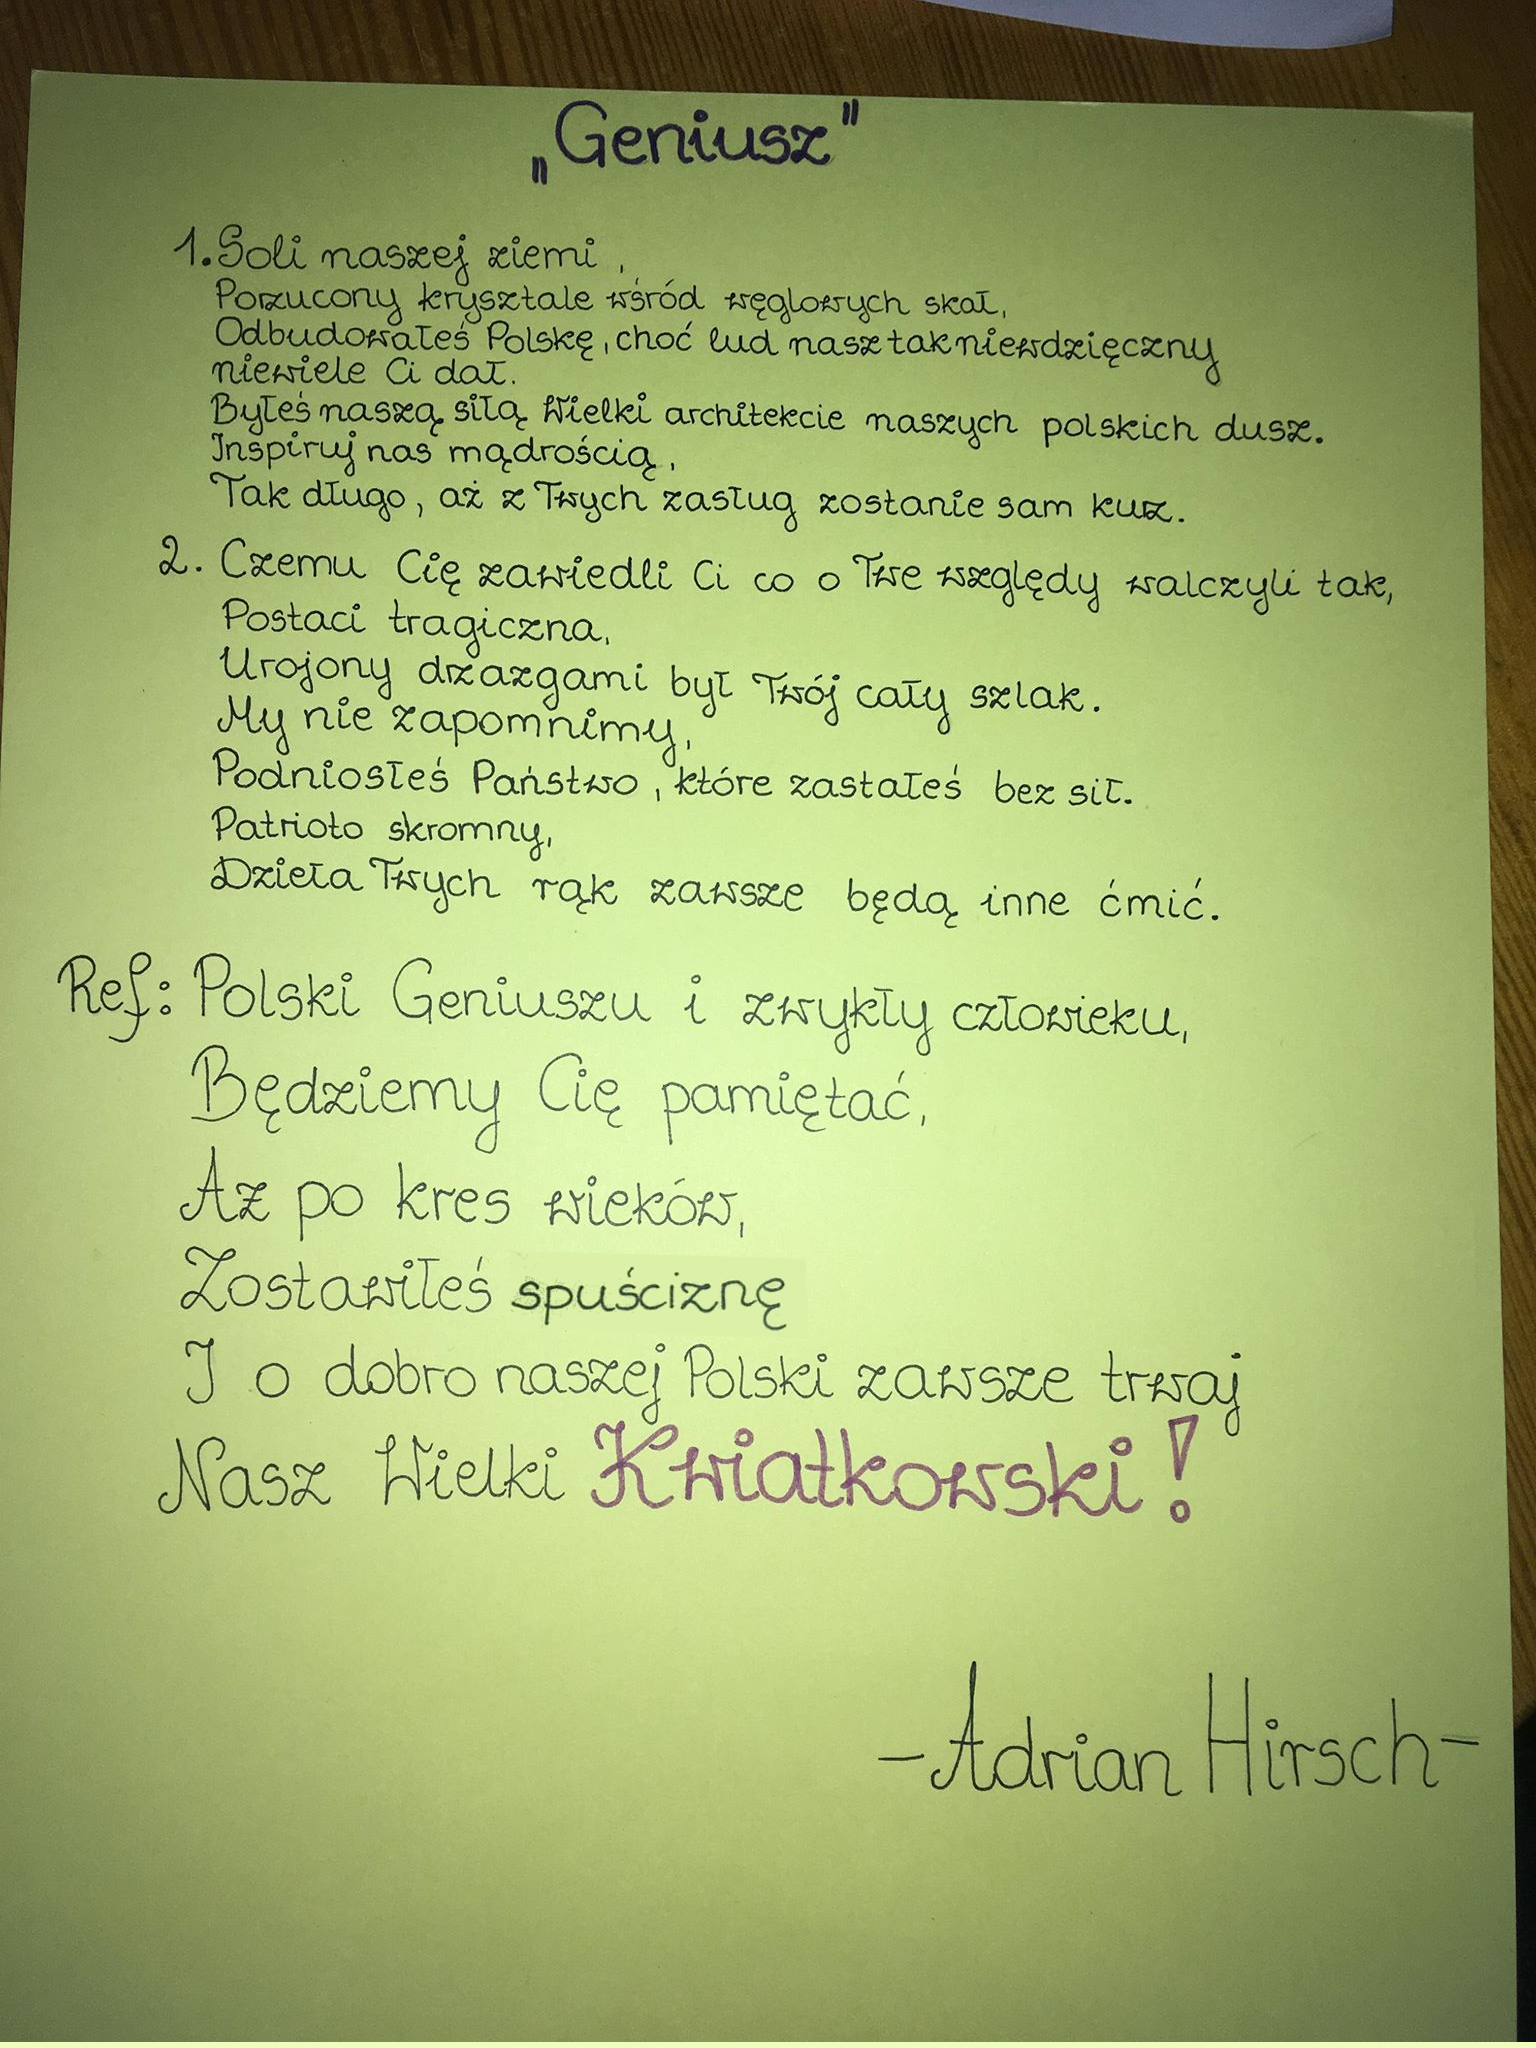 „Geniusz"
1. Soli naszej ziemi,
Porzucony krysztale wśród węglowych skał,
Odbudowałeś Polskę, choć lud nasz tak niewdzięczny
niewiele Ci dał.
Byłeś naszą siłą Wielki architekcie naszych polskich dusz.
Inspiruj nas mądrością,
Tak długo, aż z Twych zasług zostanie sam kurz.
2. Czemu Cię zawiedli Ci co o Twe względy walczyli tak,
Postaci tragiczna,
Urojony drzazgami był Twój cały szlak.
My nie zapomnimy,
Podniosłeś Państwo, które zastałeś bez sił.
Patrioto skromny,
Dzieła Twych rąk zawsze będą inne ćmić.
Ref: Polski Geniuszu i zwykły człowieku,
Będziemy Cię pamiętać,
Aż po kres wieków,
Zostawiłeś spuściznę
I o dobro naszej Polski zawsze trwaj
Nasz Wielki Kwiatkowski!
-Adrian Hirsch-